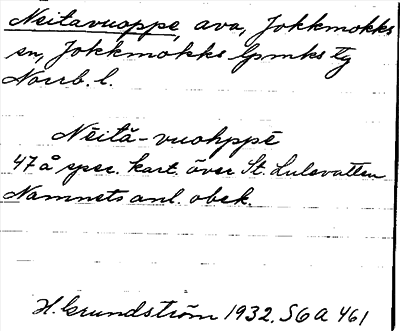 Neitavuoppe, ava, Jokkmokks
sn, Jokkmokks lpmks tg
Norrb. l.
Nēitā-vuohppē
47 å spec. kart. över St. Lulevatten
Namnets anl. obek.
H. Grundström 1932. SOA 461